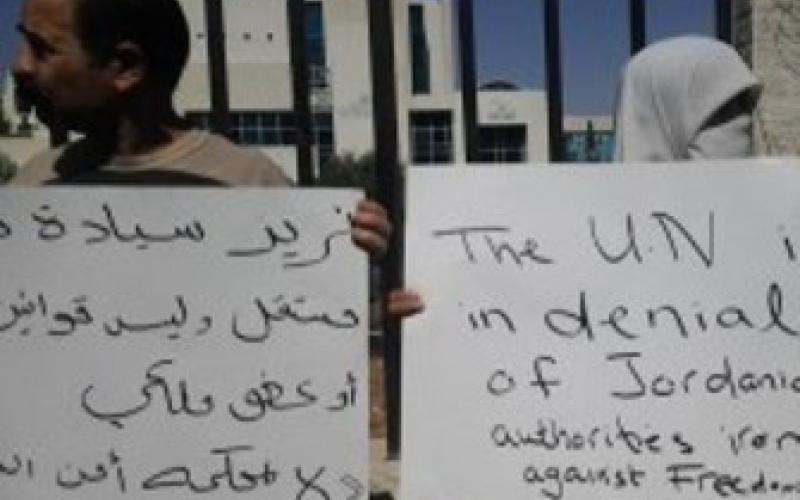 نريد سيادة
مستقل وليس قوانين
أو عفو ملكي
لا محكمة أمن
The U.N i
in denial
of Jordania
authorities iron
against Freedom